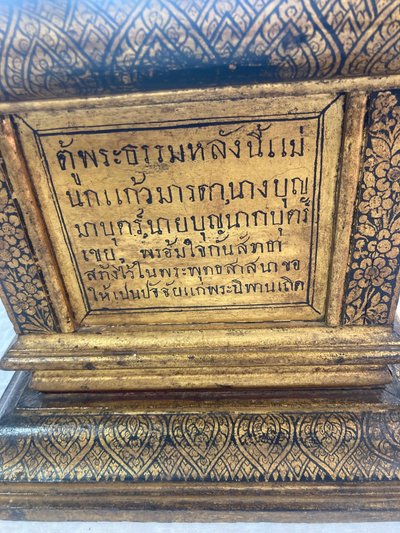 ตู้พระธรรมหลังนี้แม่
นกแก้วมารดา,นางบุญ
มาบุตร์,นายบุญนากบุตร์
เขย, พร้อมใจกันสัทธา
สร้างไว้ในพระพุทธสาสนาขอ
ให้เปนปัจจัยแก่พระนิพานเถิด